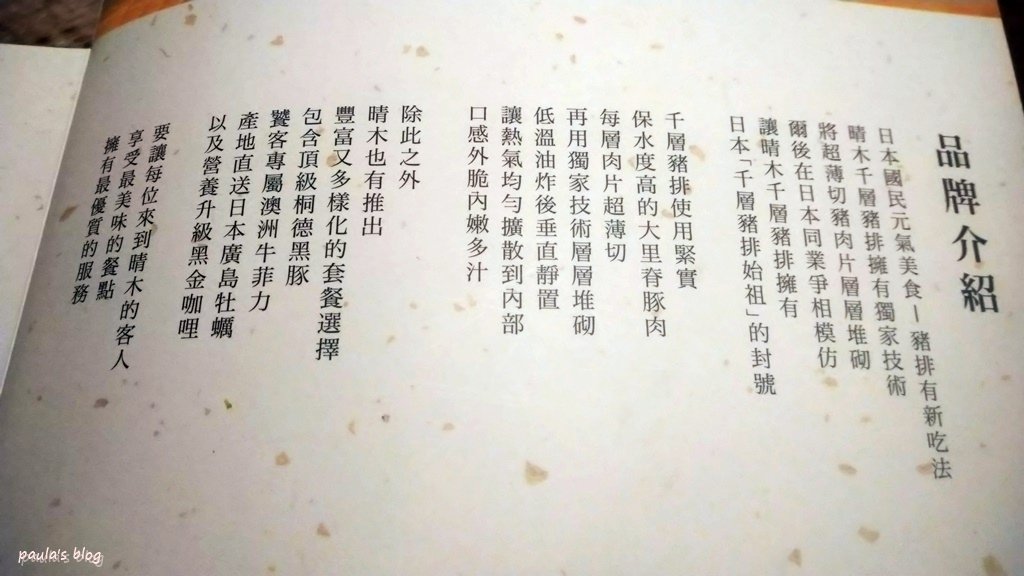 品牌介紹
日本國民元氣美食－豬排有新吃法
晴木千層豬排擁有獨家技術
將超薄切豬肉片層層堆砌
爾後在日本同業爭相模仿
讓晴木千層豬排擁有
日本「千層豬排始祖」的封號
千層豬排使用緊實
保水度高的大里脊豚肉
每層肉片超薄切
再用獨家技術層層堆砌
低溫油炸後垂直靜置
讓熱氣均勻擴散到內部
口感外脆內嫩多汁
除此之外
晴木也有推出
豐富又多樣化的套餐選擇
包含頂級桐德黑豚
饕客專屬澳洲牛菲力
產地直送日本廣島牡蠣
以及營養升級黑金咖哩
要讓每位來到晴木的客人
享受最美味的餐點
擁有最優質的服務
paula's blog